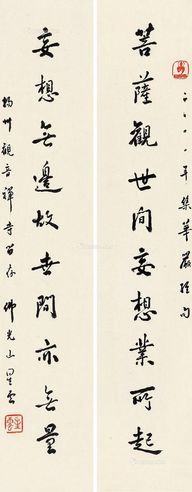 年集華嚴經句
菩薩觀世間妄想業所起
妄想無邊故世間亦無量
揚州觀音禪寺留存 佛光山星雲